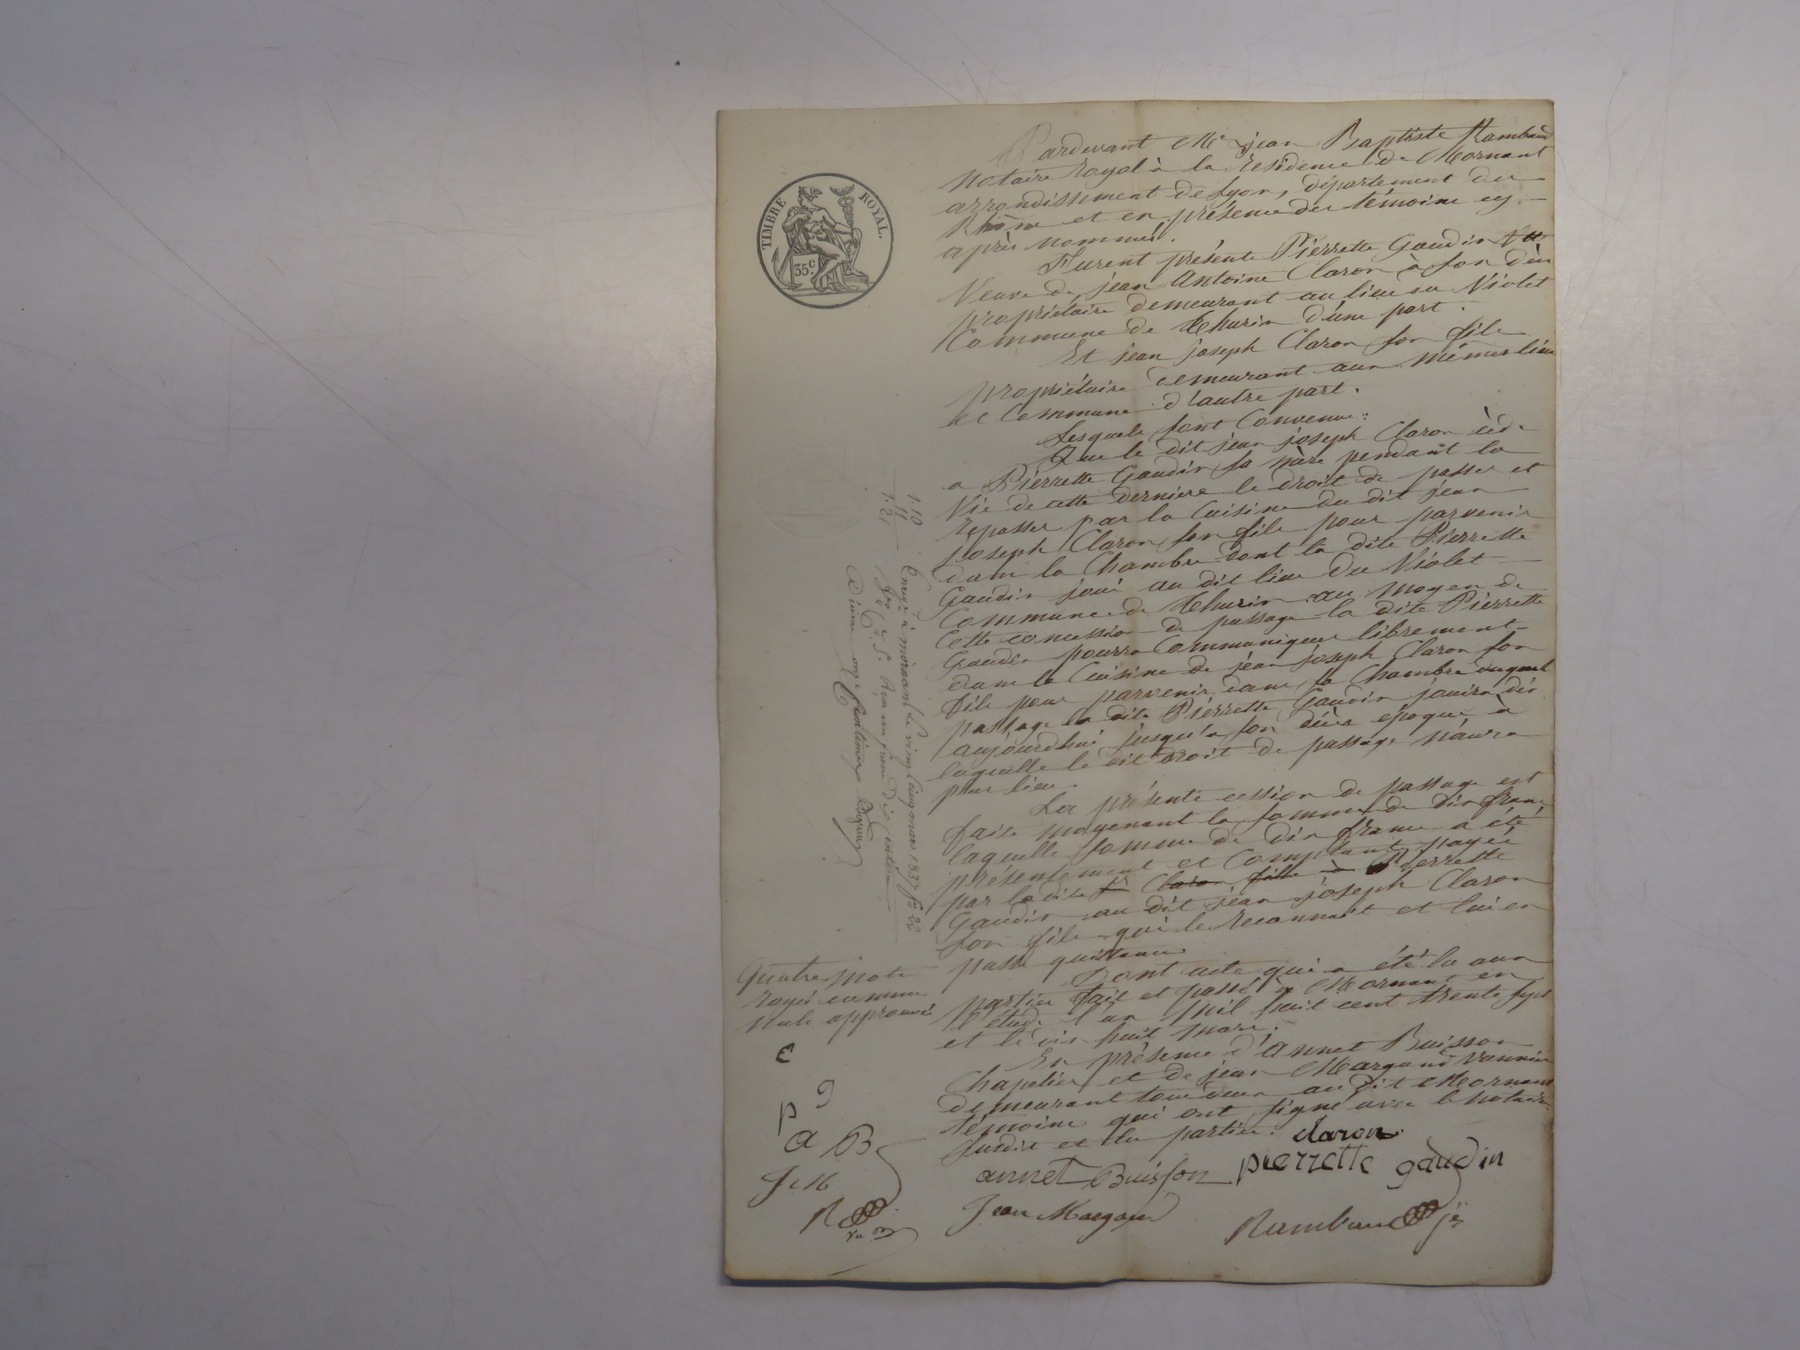 TIMBRE ROYAL.
35c
Pardevant Me jean Baptiste Rambaud
Notaire Royal à la Résidence de Mornant
arrondissement de Lyon, département du
Rhône et en présence des témoins cy-
après nommés.
Furent présents Pierrette Gaudin
Veuve de jean Antoine Claron à son décès
propriétaire demeurant au lieu du Violet
Commune de thurin d'une part.
Et jean joseph Claron son fils
propriétaire demeurant aux mêmes lieu
et Commune d'autre part.
Lesquels sont Convenus:
Que le dit jean joseph Claron cède
a Pierrette Gaudin sa mère pendant la
Vie de cette dernière le droit de passer et
repasser par la Cuisine du dit jean
joseph Claron son fils pour parvenir
dans la Chambre dont la dite Pierrette
Gaudin joui au dit lieu du Violet
Commune de thurin au moyen de
Cette concession de passage la dite Pierrette
Gaudin pourra Communiquer librement
dans la Cuisine de jean joseph Claron son
fils pour parvenir dans sa Chambre duquel
passage la dite Pierrette Gaudin jouira dès
aujourdhui jusqu'a son décès époque à
laquelle le dit droit de passage n'aura
plus lieu.
La présente cession de passage est
faite moyenant la somme de dix francs
laquelle somme de dix francs a été
présentement et Comptant payée
par la dite Claron fille à Pierrette
Gaudin au dit jean joseph Claron
son fils qui le reconnait et lui en
passe quittance
Dont acte qui a été lu aux
parties fait et passé à Mornant en
l'étude l'an mil huit cent trente sept
et le dix huit mars.
En présence d'Annet Buisson
Chapelier et de jean Margand Vannier
demeurant tous deux au dit Mornant
témoins qui ont signé avec le Notaire
susdit et les parties.
claron
annet Buisson pierrette gaudin
Jean Margand
Rambaud
quatre mots
rayés comme
nuls approuvés
C
p g
a B
J M
R
1.10
11
1.21
Enregé à mornant le vingt cinq mars 1837 fo 22
Reçu un franc dix centimes
Dixme onze centimes